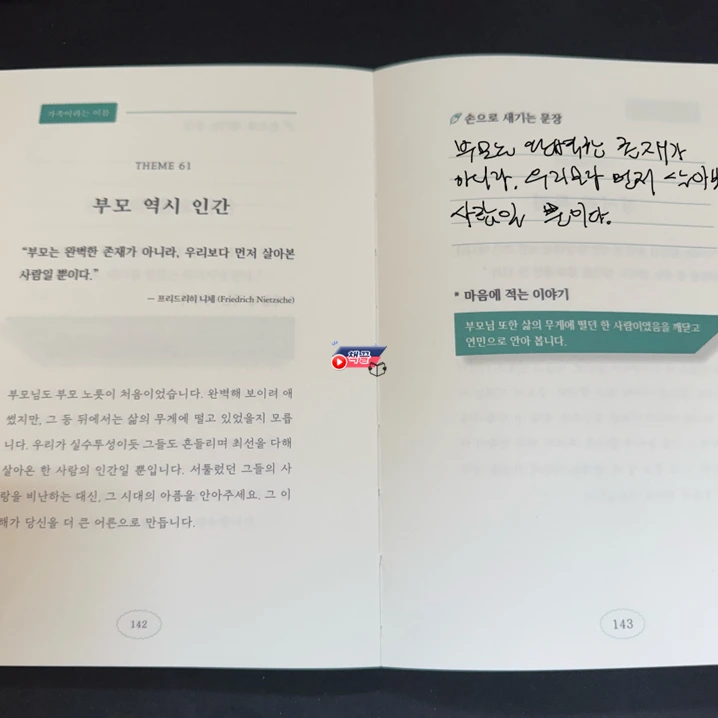 가족이라는 이름
THEME 61
부모 역시 인간
“부모는 완벽한 존재가 아니라, 우리보다 먼저 살아본
사람일 뿐이다.”
― 프리드리히 니체 (Friedrich Nietzsche)
부모님도 부모 노릇이 처음이었습니다. 완벽해 보이려 애
썼지만, 그 등 뒤에서는 삶의 무게에 떨고 있었을지 모릅
니다. 우리가 실수투성이듯 그들도 흔들리며 최선을 다해
살아온 한 사람의 인간일 뿐입니다. 서툴렀던 그들의 사
랑을 비난하는 대신, 그 시대의 아픔을 안아주세요. 그 이
해가 당신을 더 큰 어른으로 만듭니다.
142
책끌
손으로 새기는 문장
부모는 완벽한 존재가
아니라, 우리보다 먼저 살아본
사람일 뿐이다.
* 마음에 적는 이야기
부모님 또한 삶의 무게에 떨던 한 사람이었음을 깨닫고
연민으로 안아 봅니다.
143